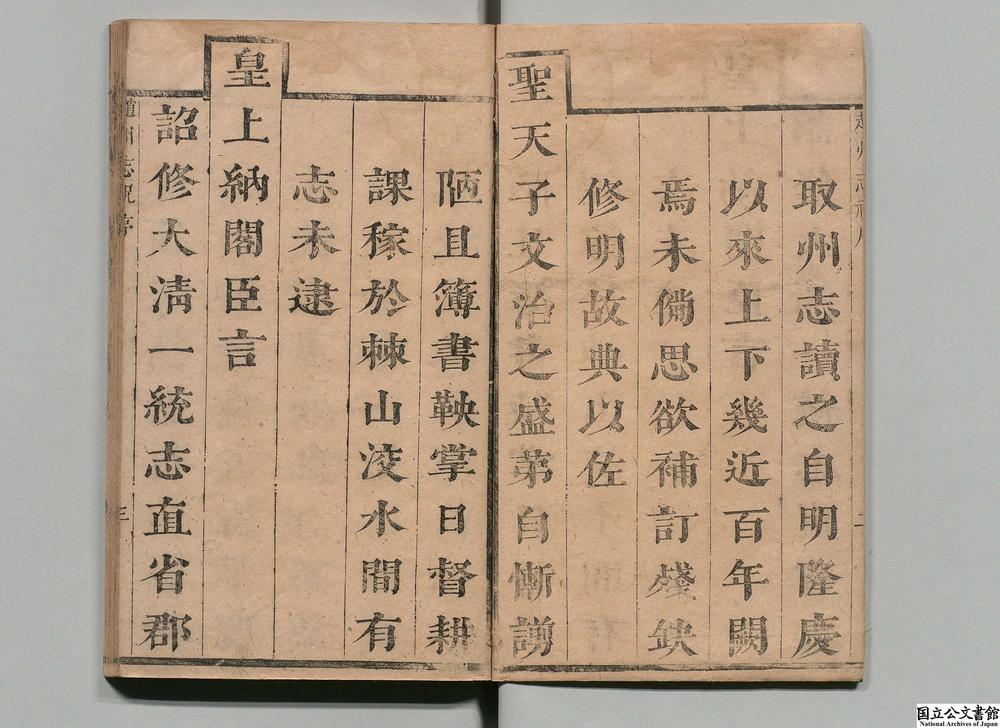 取州志讀之自明隆慶
以來上下幾近百年闕
焉未備思欲補訂殘缺
修明故典以佐
聖天子文治之盛苐自慚謭
陋且簿書鞅掌日督耕
課稼於棘山洨水間有
志未逮
皇上納閣臣言
詔修大淸一統志直省郡
三
国立公文書館
National Archives of Japan